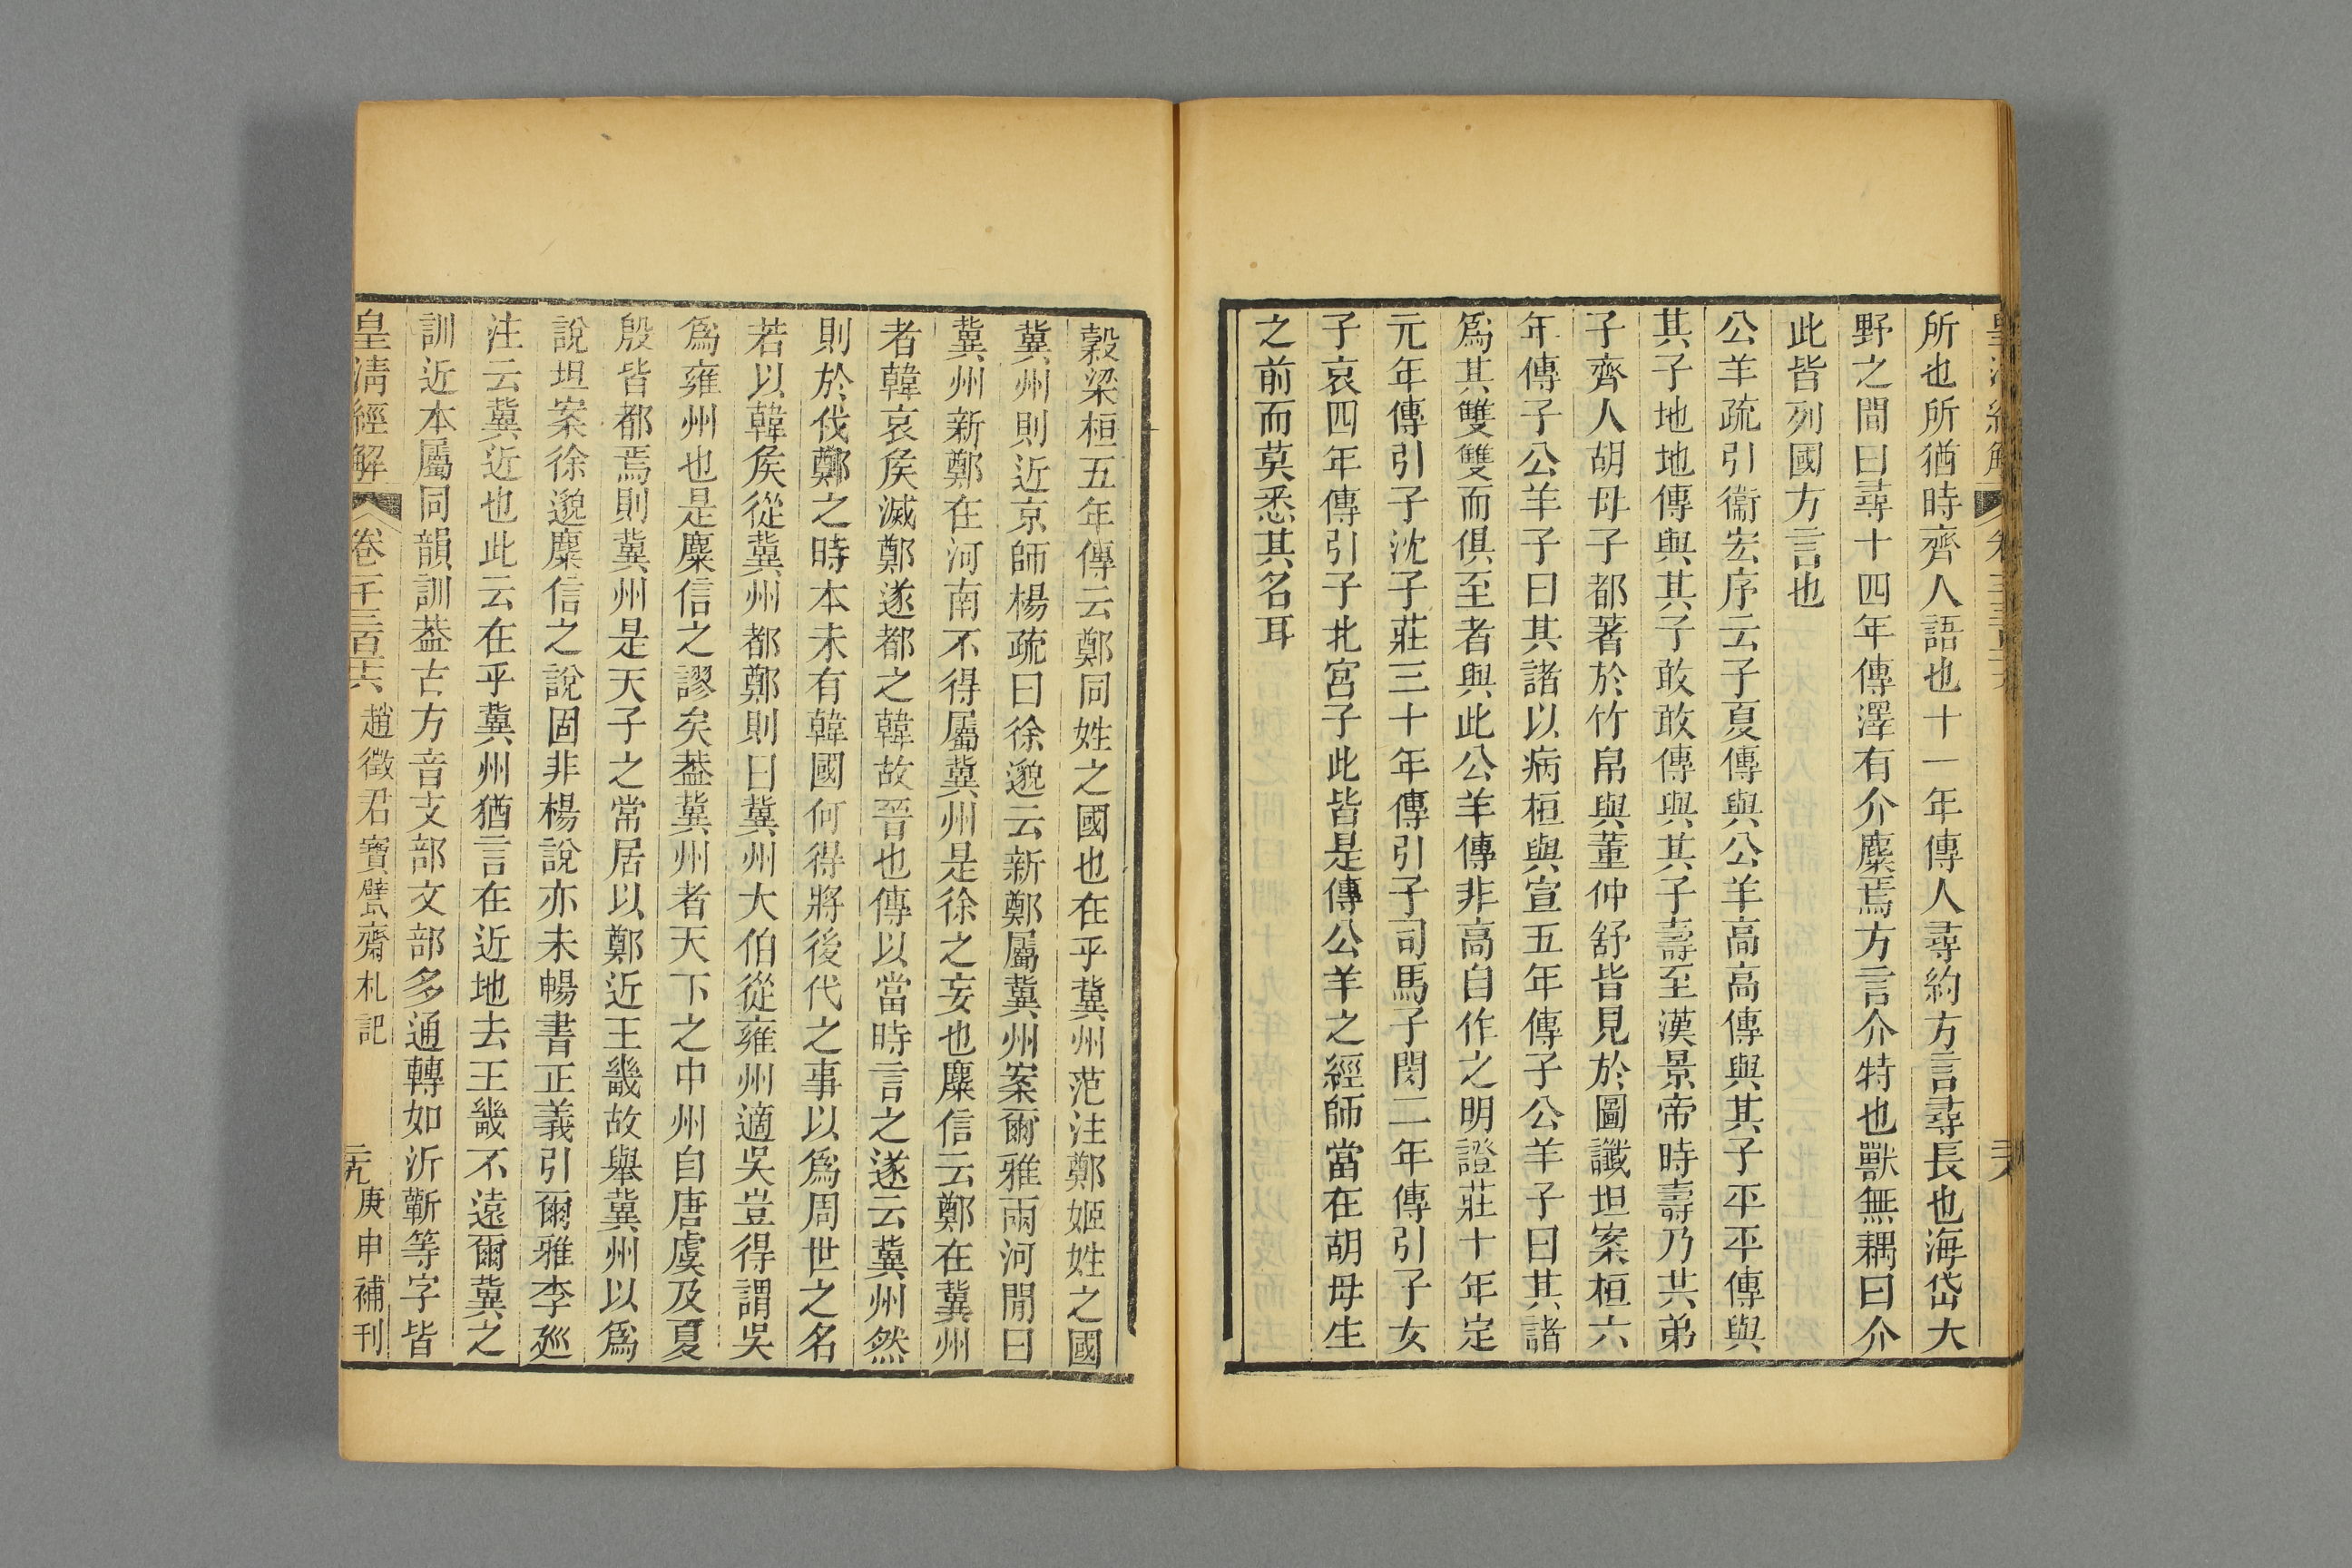 所也所猶時齊人語也十一年傳人尋約方言尋長也海岱大
野之間曰尋十四年傳澤有介麋焉方言介特也獸無耦曰介
此皆列國方言也
公羊疏引衞宏序云子夏傳與公羊高高傳與其子平平傳與
其子地地傳與其子敢敢傳與其子壽至漢景帝時壽乃共弟
子齊人胡母子都著於竹帛與董仲舒皆見於圖讖坦案桓六
年傳子公羊子曰其諸以病桓與宣五年傳子公羊子曰其諸
爲其雙雙而俱至者與此公羊傳非高自作之明證莊十年定
元年傳引子沈子莊三十年傳引子司馬子閔二年傳引子女
子哀四年傳引子北宮子此皆是傳公羊之經師當在胡母生
之前而莫悉其名耳
穀梁桓五年傳云鄭同姓之國也在乎冀州范注鄭姬姓之國
冀州則近京師楊疏曰徐邈云新鄭屬冀州案爾雅兩河閒曰
冀州新鄭在河南不得屬冀州是徐之妄也麋信云鄭在冀州
者韓哀矦滅鄭遂都之韓故晉也傳以當時言之遂云冀州然
則於伐鄭之時本未有韓國何得將後代之事以爲周世之名
若以韓矦從冀州都鄭則曰冀州大伯從雍州適吳豈得謂吳
爲雍州也是麋信之謬矣葢冀州者天下之中州自唐虞及夏
殷皆都焉則冀州是天子之常居以鄭近王畿故舉冀州以爲
說坦案徐邈麋信之說固非楊說亦未暢書正義引爾雅李廵
注云冀近也此云在乎冀州猶言在近地去王畿不遠爾冀之
訓近本屬同韻訓葢古方音支部文部多通轉如沂蘄等字皆
皇淸經解 卷一千三百十六 趙徵君寶甓齋札記 二九 庚申補刊